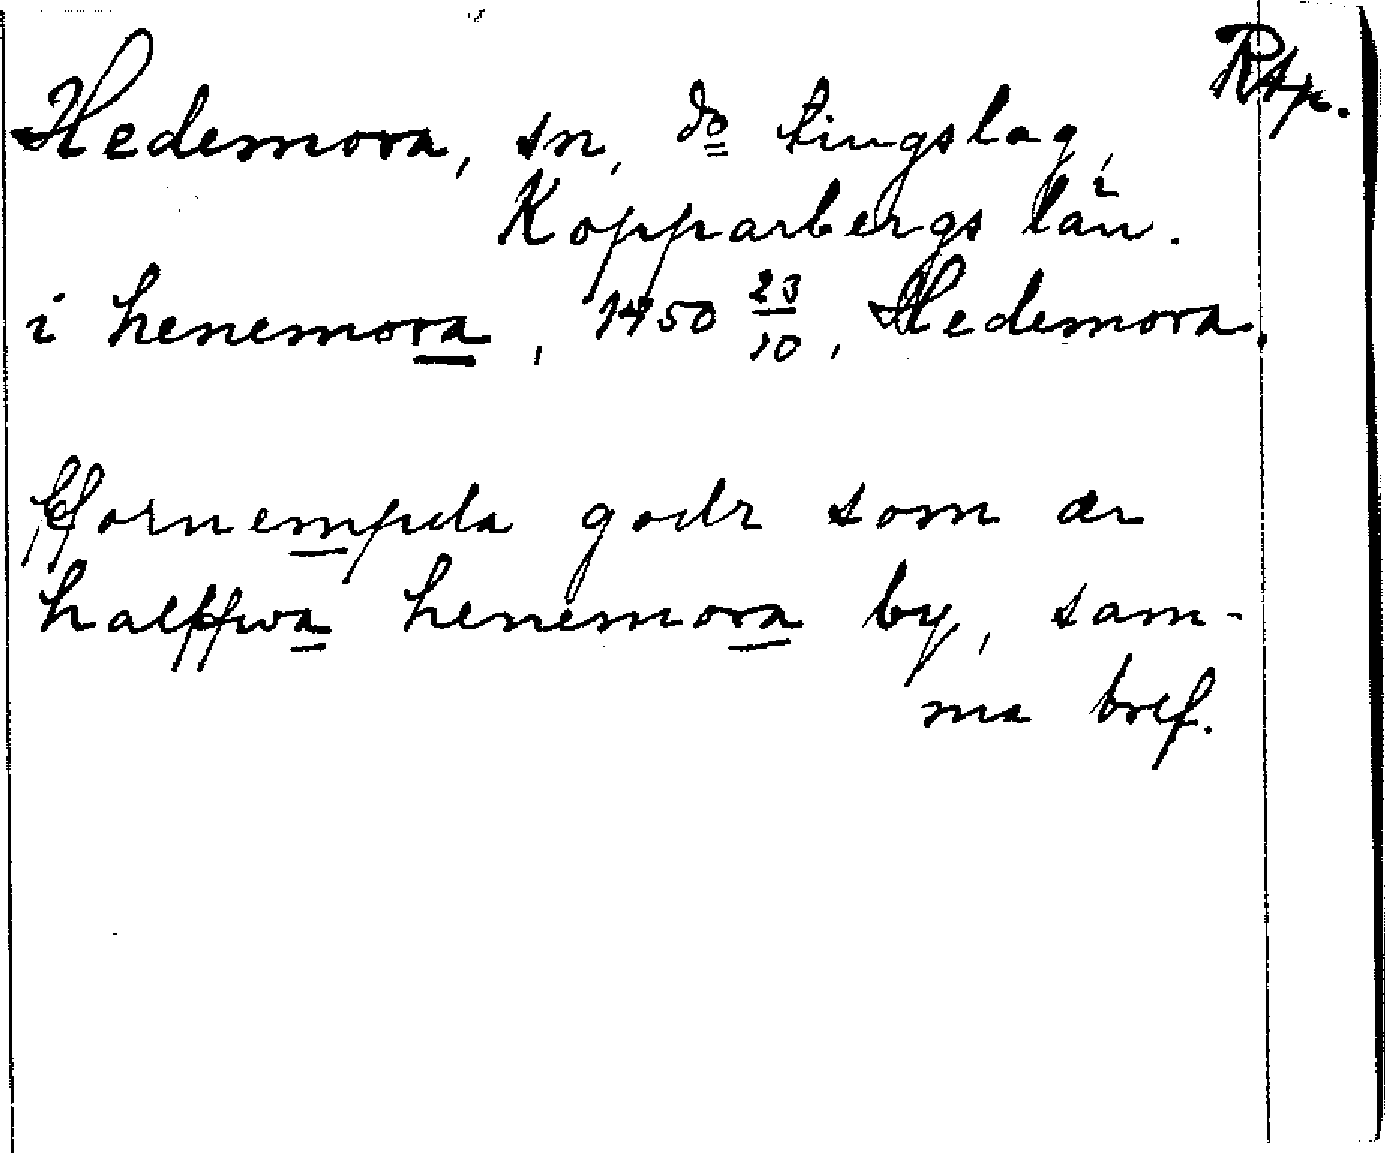 Rtp.
Hedemora, sn, do tingslag,
Kopparbergs län.
i henemora, 1450 23/10, Hedemora.
fornempda godz som ær
halffwa henemora by, sam-
ma bref.